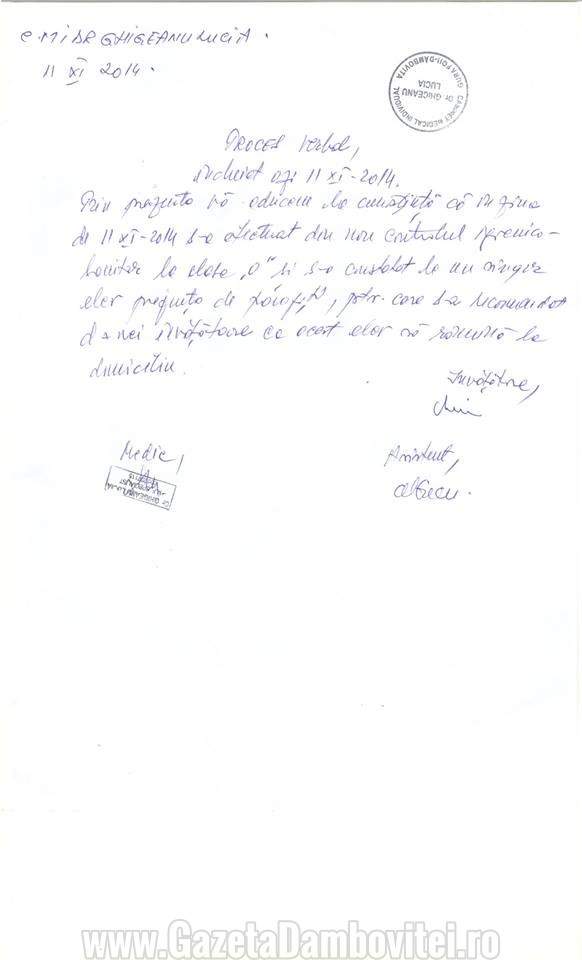 C.M.I DR GHIGEANU LUCIA.
11 XI 2014.
CABINET MEDICAL INDIVIDUAL
Dr GHIGEANU
LUCIA
GURA FOII-DAMBOVITA
Proces verbal,
încheiat azi 11 XI-2014.
Prin prezenta vă aducem la cunoștință că în ziua
de 11 XI-2014 s-a efectuat din nou controlul igienico-
sanitar la clasa „0” și s-a constatat la un singur
elev prezența de paraziți, ptr. care s-a recomandat
d-nei învățătoare ca acest elev să rămână la
domiciliu.
Învățătoare,
Medic,
Asistent,
Dr GHIGEANU LUCIA
www.GazetaDambovitei.ro